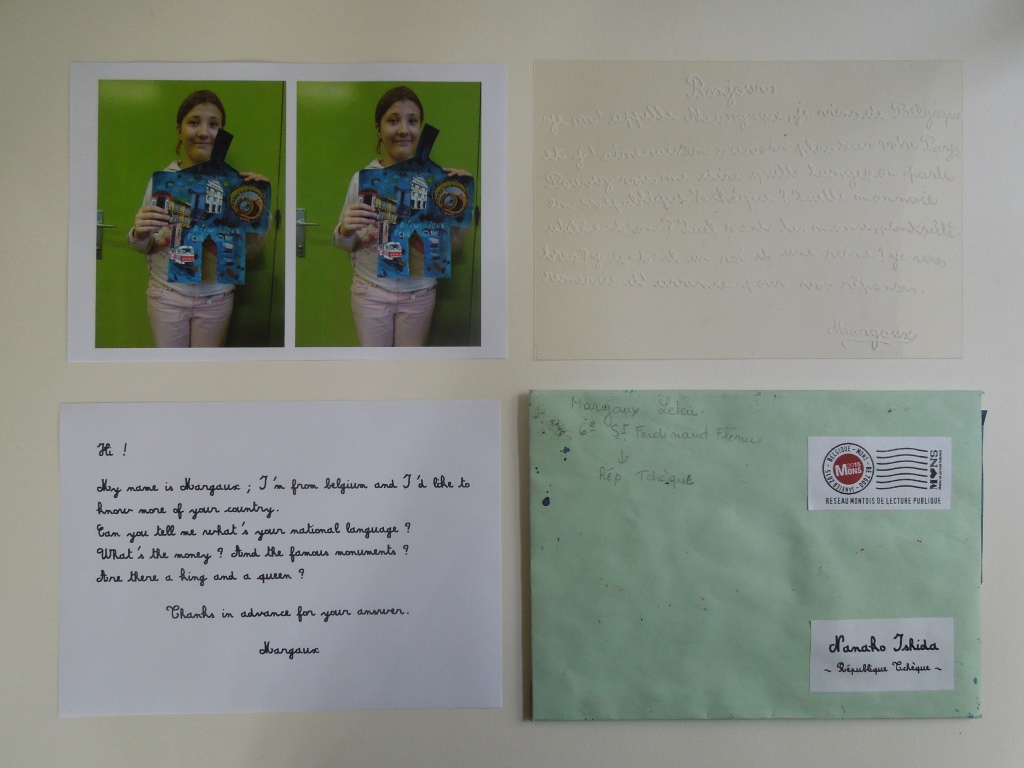 Bonjour,
je m'appelle Margaux, je viens de Belgique
et j'aimerais en savoir plus sur votre Pays.
Pouvez-vous me dire quelle langue on parle
en République Tchèque ? Quelle monnaie
un roi et une reine ? je vous
remercie d'avance pour vos réponses.
Margaux
Hi !
My name is Margaux ; I'm from belgium and I'd like to
know more of your country.
Can you tell me what's your national language ?
What's the money ? And the famous monuments ?
Are there a king and a queen ?
Thanks in advance for your answer.
Margaux
Margaux Leleu
6e St Ferdinand
↓
Rép Tchèque
BELGIQUE - MONS
2015
MONS
MONS
RESEAU MONTOIS DE LECTURE PUBLIQUE
Nanaho Ishida
~ République Tchèque ~